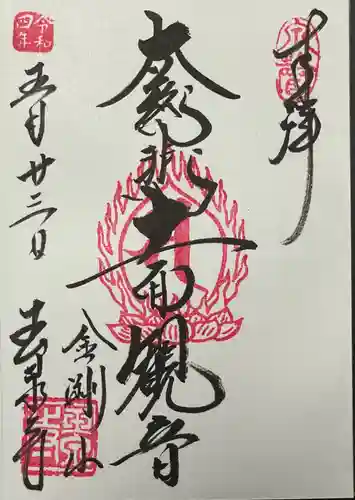 奉拝
大慈悲十一面観音
金渕山
玉泉寺
令和四年
五月廿三日